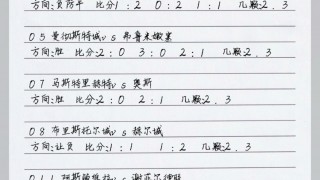 方向:负防平 比分:1:2 0:2 1:1 几颗:2.3
05 曼彻斯特城vs弗鲁米嫩塞
方向:胜 比分:2:0 3:0 2:1 几颗:2.3
07 马斯特里赫特vs奥斯
方向:胜 比分:2:0 2:1 1:2 几颗:2.3
08 布里斯托尔城vs赫尔城
方向:让负 比分:1:1 1:2 几颗:2.3